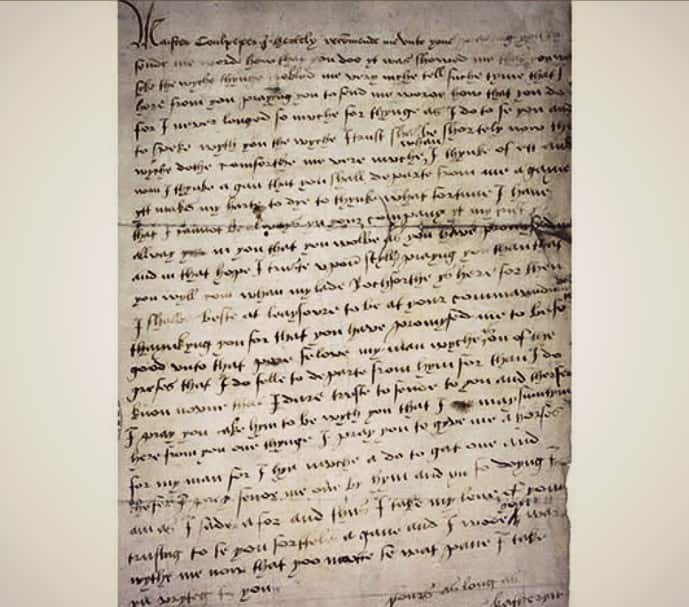 Maister Coulpeper I hertely recomende me unto youe praying you to
sende me worde how that you doo yt was showed me that you was
sike the wyche thynge trobled me very muche tell suche tyme that I
here from you praying you to send me worde how that you do
for I never longed so muche for thynge as I do to se you and
to speke wyth you the wyche I trust shal be shortely now the
wyche dothe comforthe me very muche whan I thynke of ett and
wan I thynke agan that you shall departe from me agane
ytt makes my harte to dye to thynke what fortune I have
that I cannot be always yn your company yt my trust
allway in you that you wolbe as you have promysed me
and in that hope I truste upon styll praying you than that
you wyll com whan my lade Rochforthe ys here for then
I shalbe beste at leaysoure to be at your commandment
thaynkyng you for that you have promysed me to be so
good unto that pore felowe my man wyche on of the
grefes that I do felle to departe from hym for than I do
know noone that I dare truste to sende to you and therfor
I pray you take hym to be wyth you that I may sumtym
here from you one thynge I pray you to gyve me a horse
for my man for I hyd muche a do to gat one and
thefer I pray sende me one by hym and yn so doyng I
am as I sade afor and thus I take my leve of you
trusting to se you shorttele agane and I wode you war
wythe me now that yoo maitte se wat pane I take
yn wryteg to you
yours as long as
Katheryn